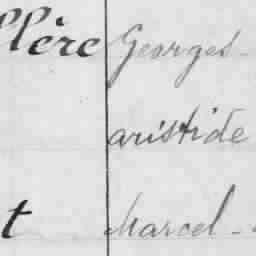 llère Georges -
aristide
t Marcel -